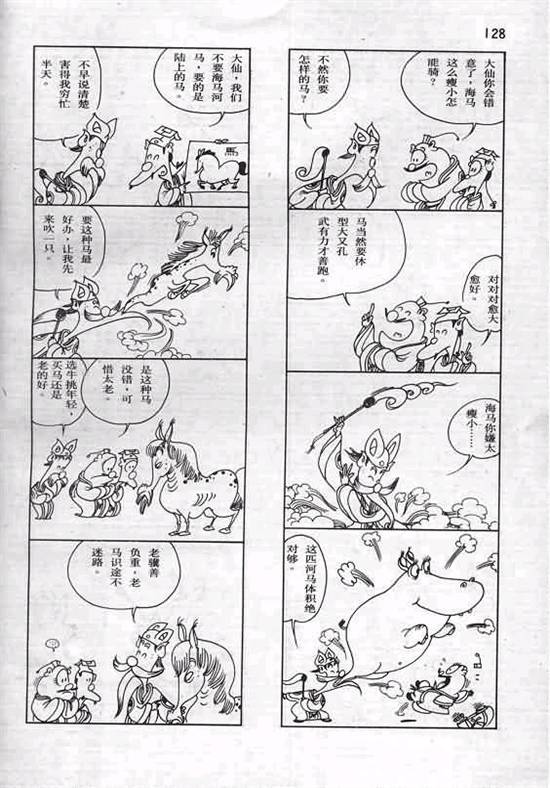 128
大仙你会错
意了，海马
这么瘦小怎
能骑？
不然你要
怎样的马？
马当然要体
型大又孔
武有力才善跑。
对对对愈大
愈好。
海马你嫌太
瘦小……
这匹河马体积绝
对够。
大仙，我们
不要海马河
马，要的是
陆上的马。
馬
不早说清楚
害得我穷忙
半天。
要这种马最
好办，让我先
来吹一只。
是这种马
没错，可
惜太老。
选牛挑年轻，
买马还是
老的好。
老骥善
负重，老
马识途不
迷路。